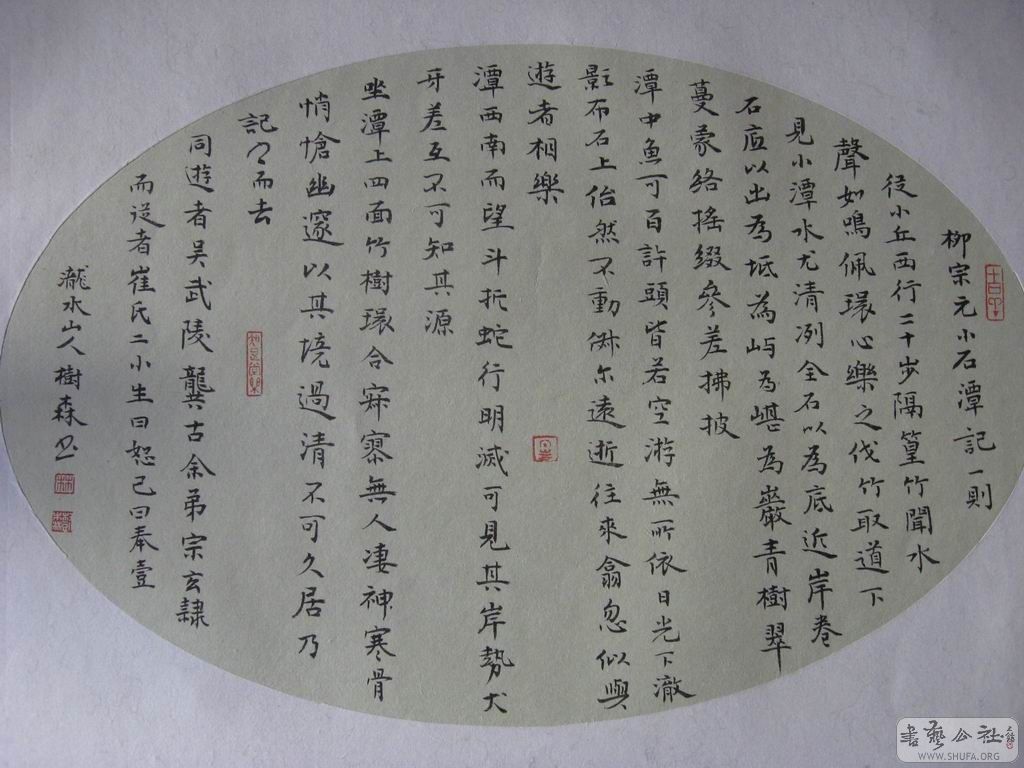 柳宗元小石潭記一則
從小丘西行二十步隔篁竹聞水
聲如鳴佩環心樂之伐竹取道下
見小潭水尤清冽全石以為底近岸卷
石底以出為坻為屿為嵁為巖青樹翠
蔓蒙絡搖綴參差拂披
潭中魚可百許頭皆若空游無所依日光下澈
影布石上佁然不動俶尔遠逝往來翕忽似與
遊者相樂
潭西南而望斗折蛇行明滅可見其岸勢犬
牙差互不可知其源
坐潭上四面竹樹環合寂寥無人凄神寒骨
悄愴幽邃以其境過清不可久居乃
記之而去
同遊者吴武陵龔古余弟宗玄隷
而從者崔氏二小生曰恕己曰奉壹
瀧水山人樹森书
書藝公社
WWW.SHUFA.ORG